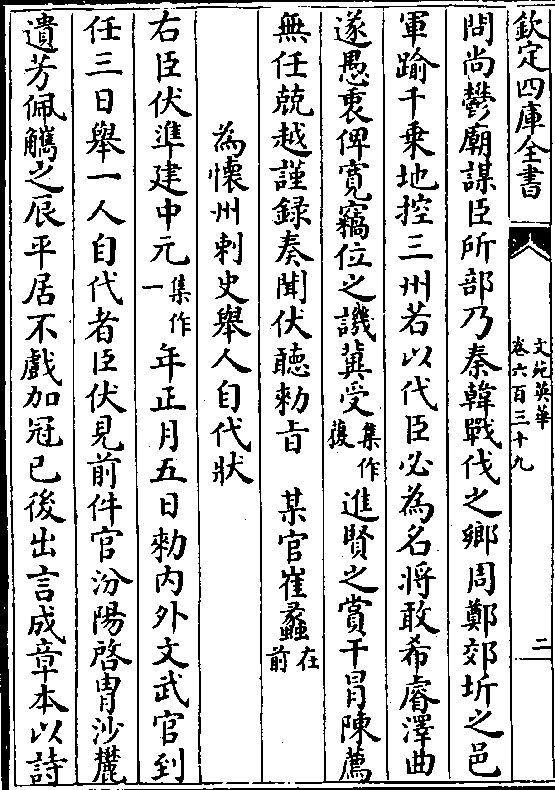 欽定四庫全書
文苑英華
卷六百三十九
二
問尚鬱廟謀臣所部乃秦韓戰伐之鄉周鄭郊圻之邑
軍踰千乗地控三州若以代臣必為名將敢希睿澤曲
遂愚衷俾寛竊位之譏冀受集作復進賢之賞干冒陳薦
無任兢越謹録奏聞伏聽勅㫖 某官崔蠡在前
為懷州刺史舉人自代狀
右臣伏準建中元集作一年正月五日勅内外文武官到
任三日舉一人自代者臣伏見前件官汾陽啓胄沙麓
遺芳佩觹之辰平居不戲加冠已後出言成章本以詩